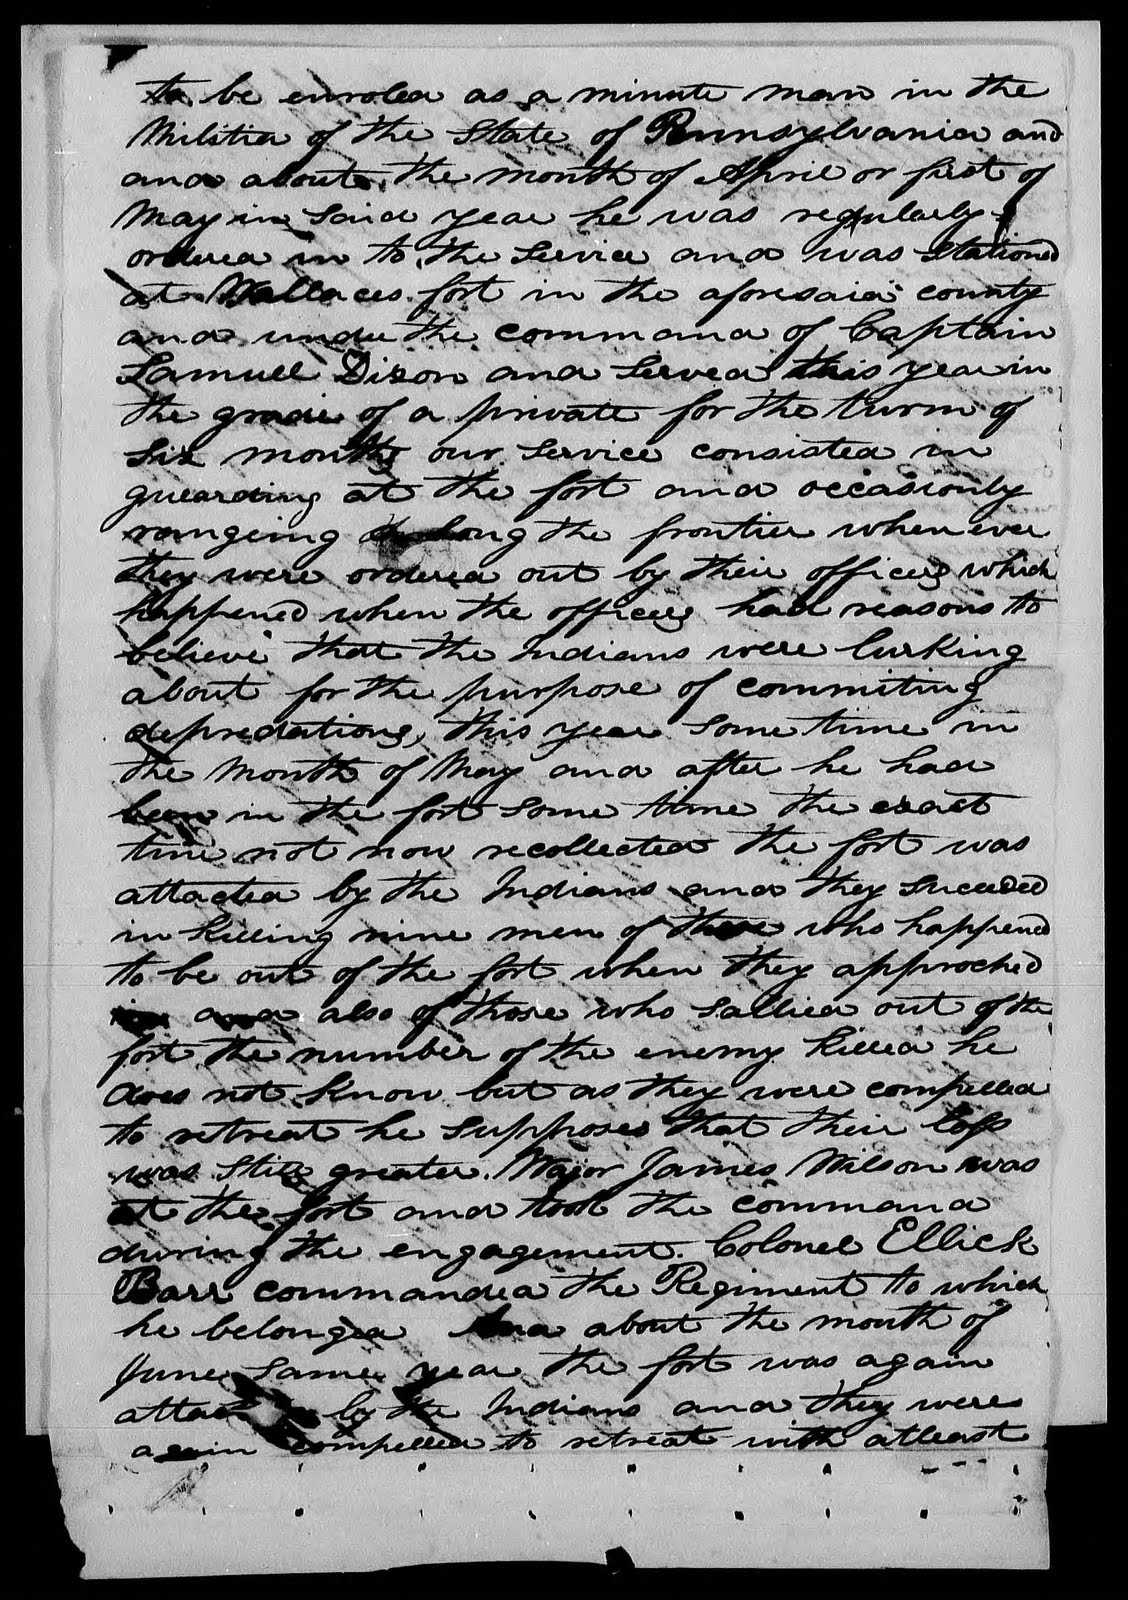 to be enroled as a minute man in the
Militia of the State of Pennsylvania and
and about the month of April or first of
May in said year he was regularly
ordered in to the Service and was stationed
at Wallaces fort in the aforesaid county
and under the command of Captain
Samuel Dixon and served this year in
the grade of a private for the turm of
six months our service consisted in
guearding at the fort and occasionly
rangeing along the frontier when ever
they were ordered out by their officers which
happened when the officers had reasons to
believe that the Indians were lurking
about for the purpose of commiting
depredations, this year some time in
the month of May and after he had
been in the fort some time the exact
time not now recollected the fort was
attacted by the Indians and they suceeded
in killing nine men of those who happened
to be out of the fort when they approched
and also of those who sallied out of the
fort the number of the enemy killed he
does not know but as they were compelled
to retreat he supposes that their loss
was still greater. Major James Wilson was
at the fort and took the command
during the engagement. Colonel Ellick
Barr commanded the Regiment to which
he belonged And about the month of
June same year the fort was again
by the Indians and they were
again compelled to retreat with atleast